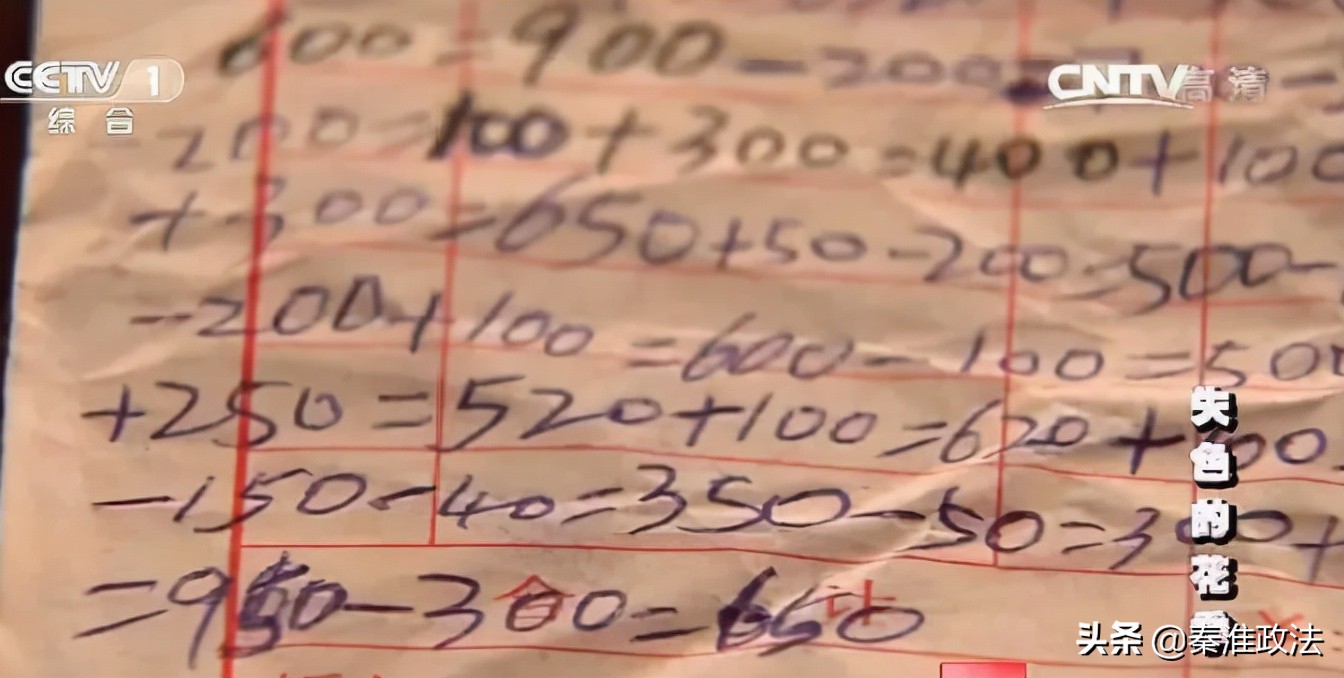 CCTV 1
综合
CNTV高清
600=900-200
200=100+300=400+100
+300=650+50-200=500-
-200+100=600-100=500
+250=520+100=620+100
-150-40=350-50=300+
=950-300=650
合计
失色的花
头条 @秦淮政法